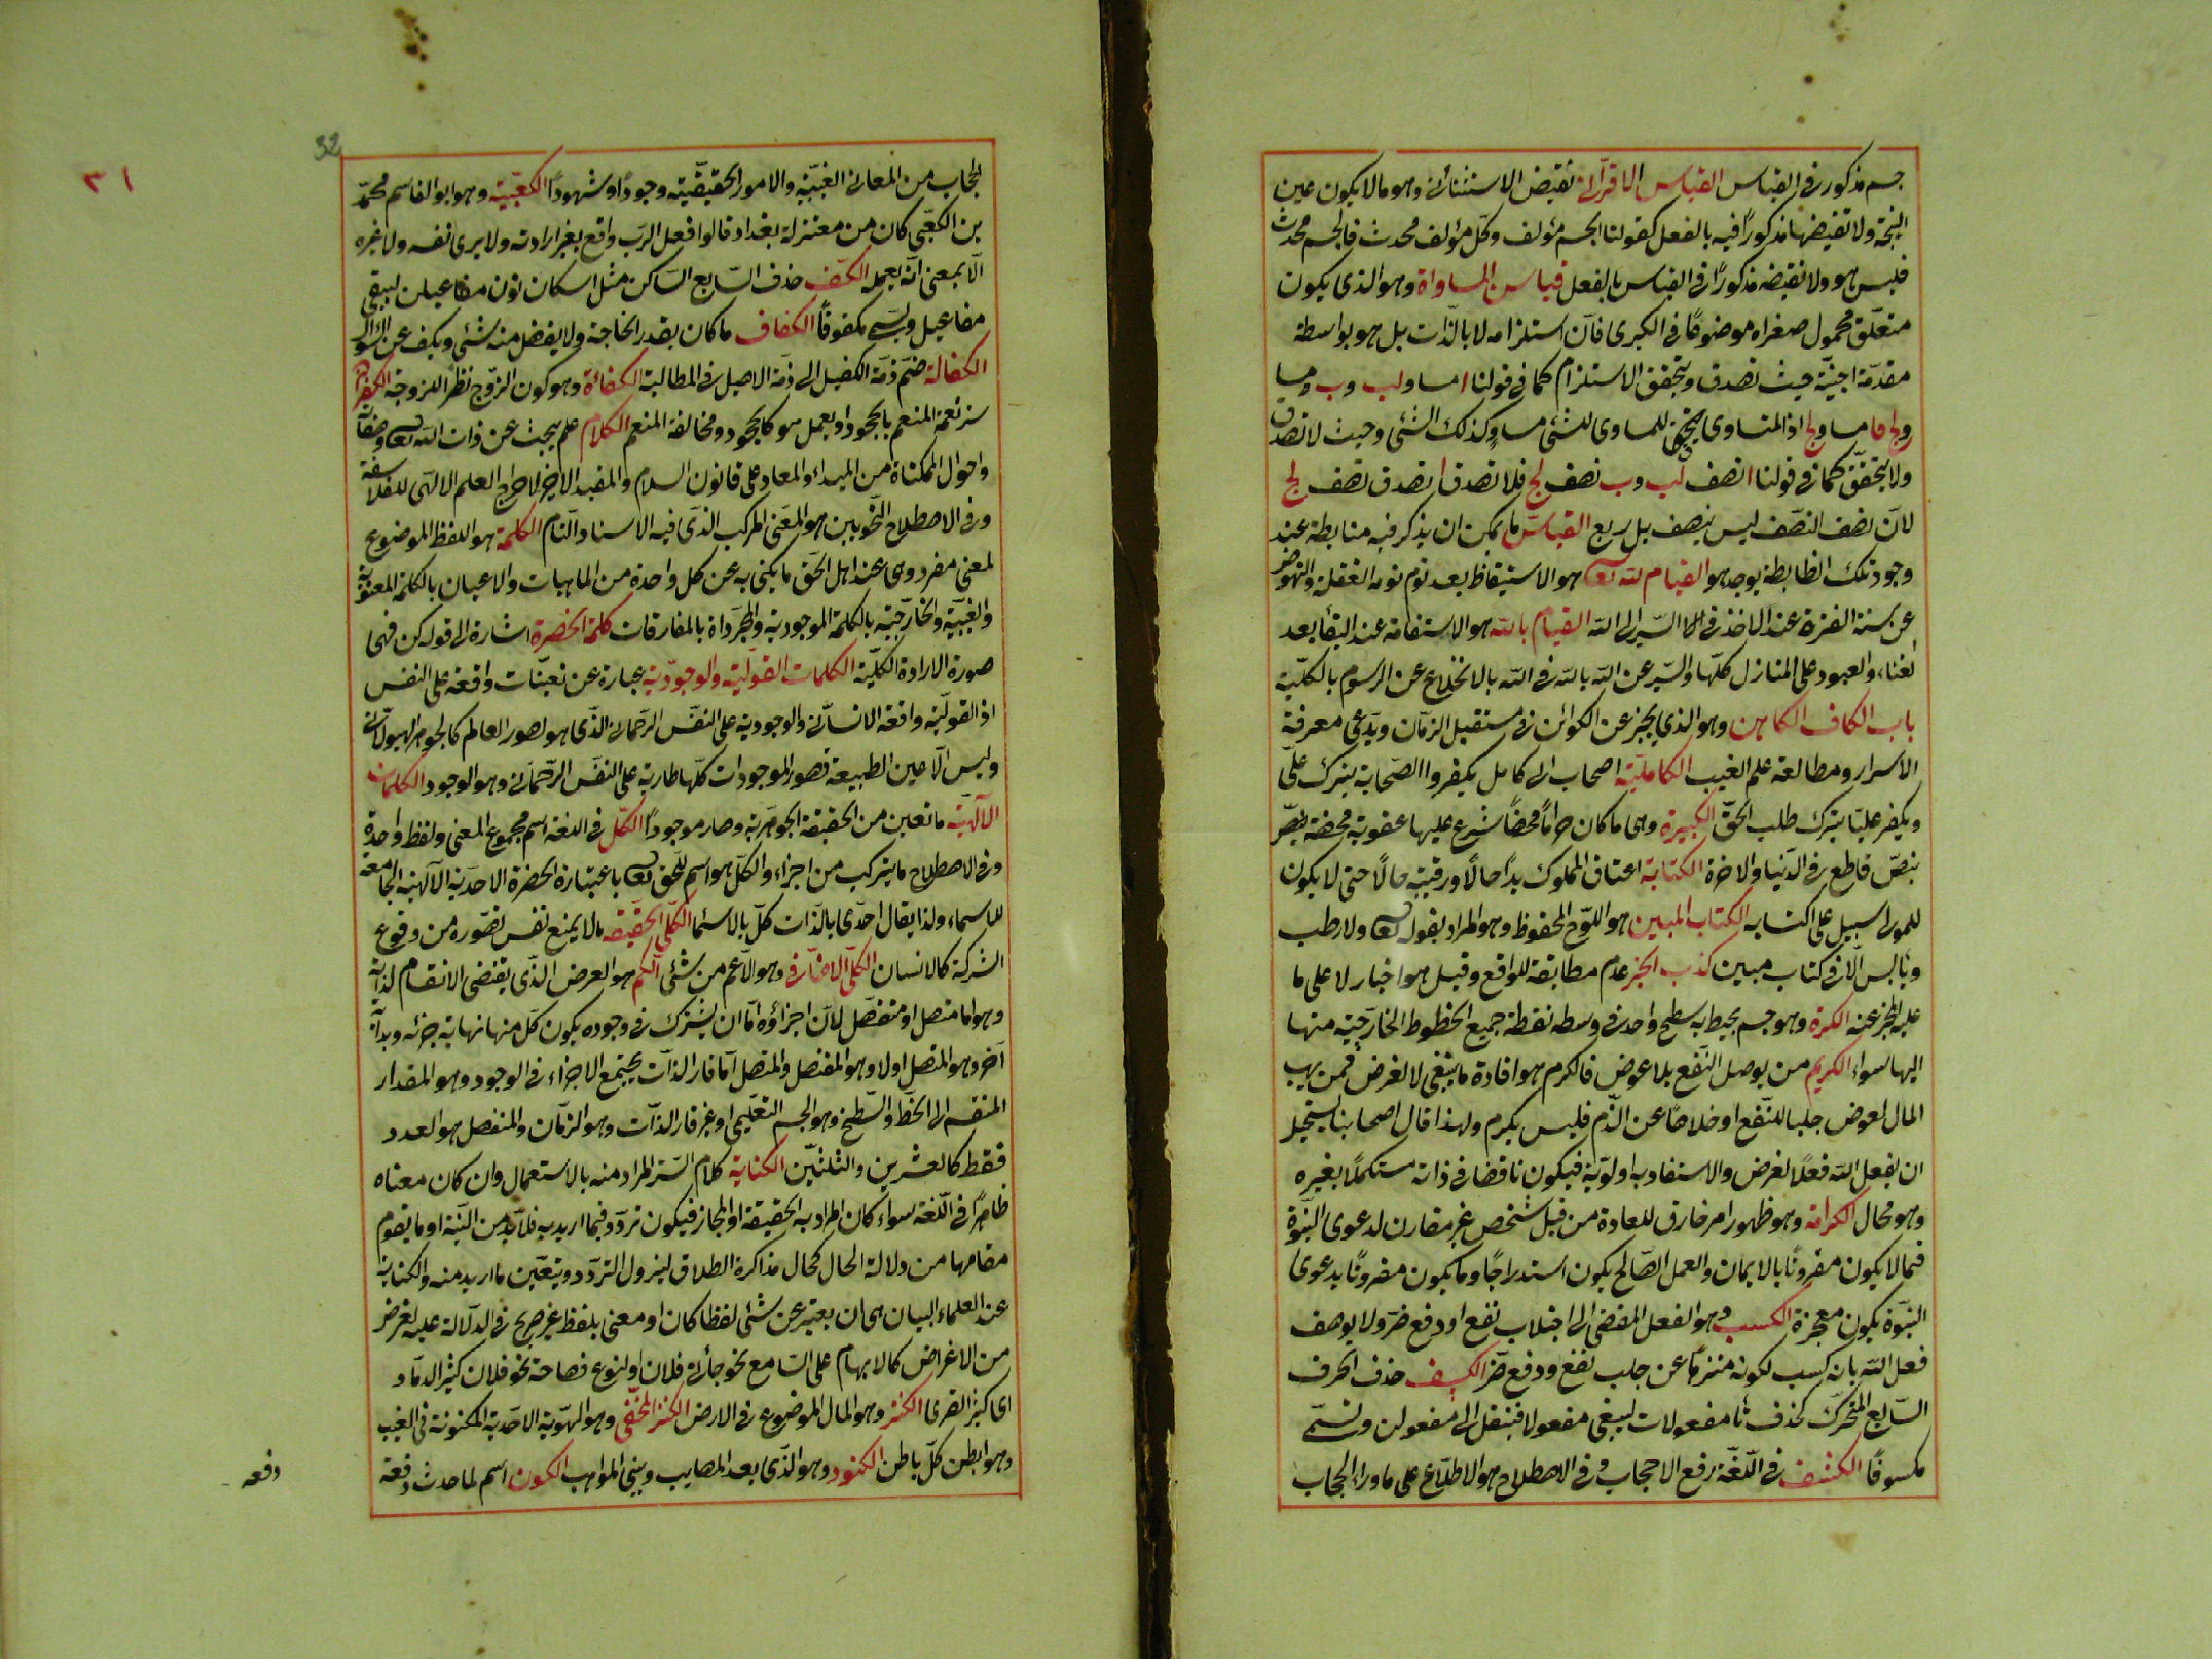 جسم مذكور فى القياس القياس الاقترانى نقيض الاستثنائى وهو ما لا يكون عين
النتيجة ولا نقيضها مذكورًا فيه بالفعل كقولنا الجسم مؤلف وكل مؤلف محدث فالجسم محدث
فليس هو ولا نقيضه مذكورًا فى القياس بالفعل قياس المساواة وهو الذى يكون
متعلق محمول صغراه موضوعًا فى الكبرى فان استلزامه لا بالذات بل هو بواسطة
مقدمة اجنبية حيث تصدق ويتحقق الاستلزام كما فى قولنا ا مساو لب وب مسا
و لج فا مساو لج اذ المساوى للمساوى للشئ مساو كذلك الشئ وحيث لا تصدق
ولا يتحقق كما فى قولنا ا نصف لب وب نصف لج فلا تصدق ا نصدق نصف لج
لان نصف النصف ليس بنصف بل ربع القياس ما يمكن ان يذكر فيه ضابطة عند
وجود تلك الضابطة يوجد هو القيام لله تعالى هو الاستيقاظ بعد نوم نومة الغفلة والنهوض
عن سنة الفترة عند الاخذ فى السير الى الله القيام بالله هو الاستقامة عند البقاء بعد
الفناء والعبود على المنازل كلها والسير عن الله بالله فى الله بالانخلاع عن الرسوم بالكلية
باب الكاف الكاهن وهو الذى يخبر عن الكوائن فى مستقبل الزمان ويدعى معرفة
الاسرار ومطالعة علم الغيب الكاملية اصحاب ابى كامل يكفروا الصحابة بترك على
ويكفر عليًا بترك طلب الحق الكبيرة وهى ما كان حرامًا محضًا شرع عليها عقوبة محضة بنص
بنص قاطع فى الدنيا والاخرة الكتابة اعتاق المملوك يدًا حالًا ورقبته مالًا حتى لا يكون
للمولى سبيل على اكتسابه الكتاب المبين هو اللوح المحفوظ وهو المراد بقوله تعالى ولا رطب
ويابس الا فى كتاب مبين كذب الخبر عدم مطابقة للواقع وقيل هو اخبار لا على ما
عليه المخبر عنه الكرة وهو جسم يحيط به سطح واحد فى وسطه نقطة جميع الخطوط الخارجية منها
اليها سواء الكريم من يوصل النفع بلا عوض فالكرم هو افادة ما ينبغى لا لغرض فمن يهب
المال لعوض جلبا للنفع او خلاصًا عن الذم فليس بكرم ولهذا قال اصحابنا يستحيل
ان يفعل الله فعلًا لغرض والا استفاد به اولوية فيكون ناقصا فى ذاته مستكملًا بغيره
وهو محال الكرامة وهو ظهور امر خارق للعادة من قبل شخص غير مقارن لدعوى النبوة
فما لا يكون مقرونًا بالايمان والعمل الصالح يكون استدراجًا وما يكون مقرونًا بدعوى
النبوة يكون معجزة الكسب وهو الفعل المفضى الى اجتلاب نفع او دفع ضر ولا يوصف
فعل الله بانه كسب لكونه منزهًا عن جلب نفع ودفع ضر الكسف حذف الحرف
السابع المتحرك كحذف تا مفعولات ليبقى مفعولا فينقل الى مفعولن وتسمى
مكسوفًا الكشف فى اللغة رفع الاحجاب و فى الاصطلاح هو الاطلاع على ما وراء الحجاب
32
٣١
الحجاب من المعانى الغيبية والامور الحقيقية وجودًا وشهودًا الكعبية وهو ابو القاسم محمد
بن الكعبى كان من معتزلة بغداد قالوا فعل الرب واقع بغير ارادته ولا يرى نفسه ولا غيره
الا بمعنى انه يعمله الكف حذف السابع الساكن مثل اسكان نون مفاعيلن ليبقى
مفاعيل ويسمى مكفوفًا الكفاف ما كان بقدر الحاجة ولا يفضل منه شئ ويكف عن السؤال
الكفالة ضم ذمة الكفيل الى ذمة الاصيل فى المطالبة الكفائة وهو كون الزوج نظيرًا للزوجة الكفران
ستر نعمة المنعم بالجحود او بعمل هو كالجحود ومخالفة المنعم الكلام علم يبحث عن ذات الله تعالى وصفاته
واحوال الممكناة من المبداء والمعاد على قانون السلام والمقيد الاخير لاخراج العلم الالهى للفلاسفة
وفى الاصطلاح النحويين هو المعنى المركب الذى فيه الاسناد التام الكلمة هو اللفظ الموضوع
لمعنى مفرد وهى عند اهل الحق ما يكنى به عن كل واحدة من الماهيات والاعيان بالكلمة المعنوية
والغيبية والخارجية بالكلمة الموجودية والمجرداة بالمفارقات كلمة الحضرة اشارة الى قوله كن فهى
صورة الارادة الكلية الكلمات القولية والوجودية عبارة عن تعينات واقعة على النفس
اذ القولية واقعة الانسانى والوجودية على النفس الرحمانى الذى هو صور العالم كالجوهر الهيولانى
وليس الا عين الطبيعة فصور الموجودات كلها طارية على النفس الرحمانى وهو الوجود الكلمات
الالهية ما تعين من الحقيقة الجوهرية وصار موجودًا الكل فى اللغة اسم مجموع المعنى ولفظ واحدة
وفى الاصطلاح ما يتركب من اجزاء والكل هو اسم للحق تعالى باعتبارة الحضرة الاحدية الالهية الجامعة
للاسماء ولذا يقال احدى بالذات كل بالاسما الكلى الحقيقية ما لا يمنع نفس تصوره من وقوع
الشركة كالانسان الكلى الاضافى وهو الاعم من شئ الكم هو العرض الذى يقتضى الانقسام لذاته
وهو اما متصل او منفصل لان اجزاؤه اما ان يشترك فى وجوده يكون كل منها نهاية جزئه وبداية
اخر وهو المتصل اولا وهو المنفصل والمتصل اما قار الذات يجتمع الاجزاء فى الوجود وهو المقدار
المنقسم الى الخط والسطح وهو الجسم التعليمى او غير قار الذات وهو الزمان والمنفصل هو العدد
فقط كالعشرين والثلثين الكناية كلام استتر المراد منه بالاستعمال وان كان معناه
ظاهرًا فى اللغة سواء كان المراد به الحقيقة او المجاز فيكون تردد فيما اريد به فلا بد من النية او ما يقوم
مقامها من دلالة الحال كحال مذاكرة الطلاق ليزول التردد ويتعين ما اريد منه والكناية
عند العلماء البيان هى ان يعبر عن شئ لفظا كان او معنى بلفظ غير صريح فى الدلالة عليه لغرض
من الاغراض كالابهام على السامع نحو جائنى فلان او لنوع فصاحة نحو فلان كثير الرماد
اى كثير القرى الكنز وهو المال الموضوع فى الارض الكنز المخفى وهو الهوية الاحدية المكنونة فى الغيب
وهو ابطن كل باطن الكنود وهو الذى يعد المصايب وينسى المواهب الكون اسم لما حدث دفعة
دفعه